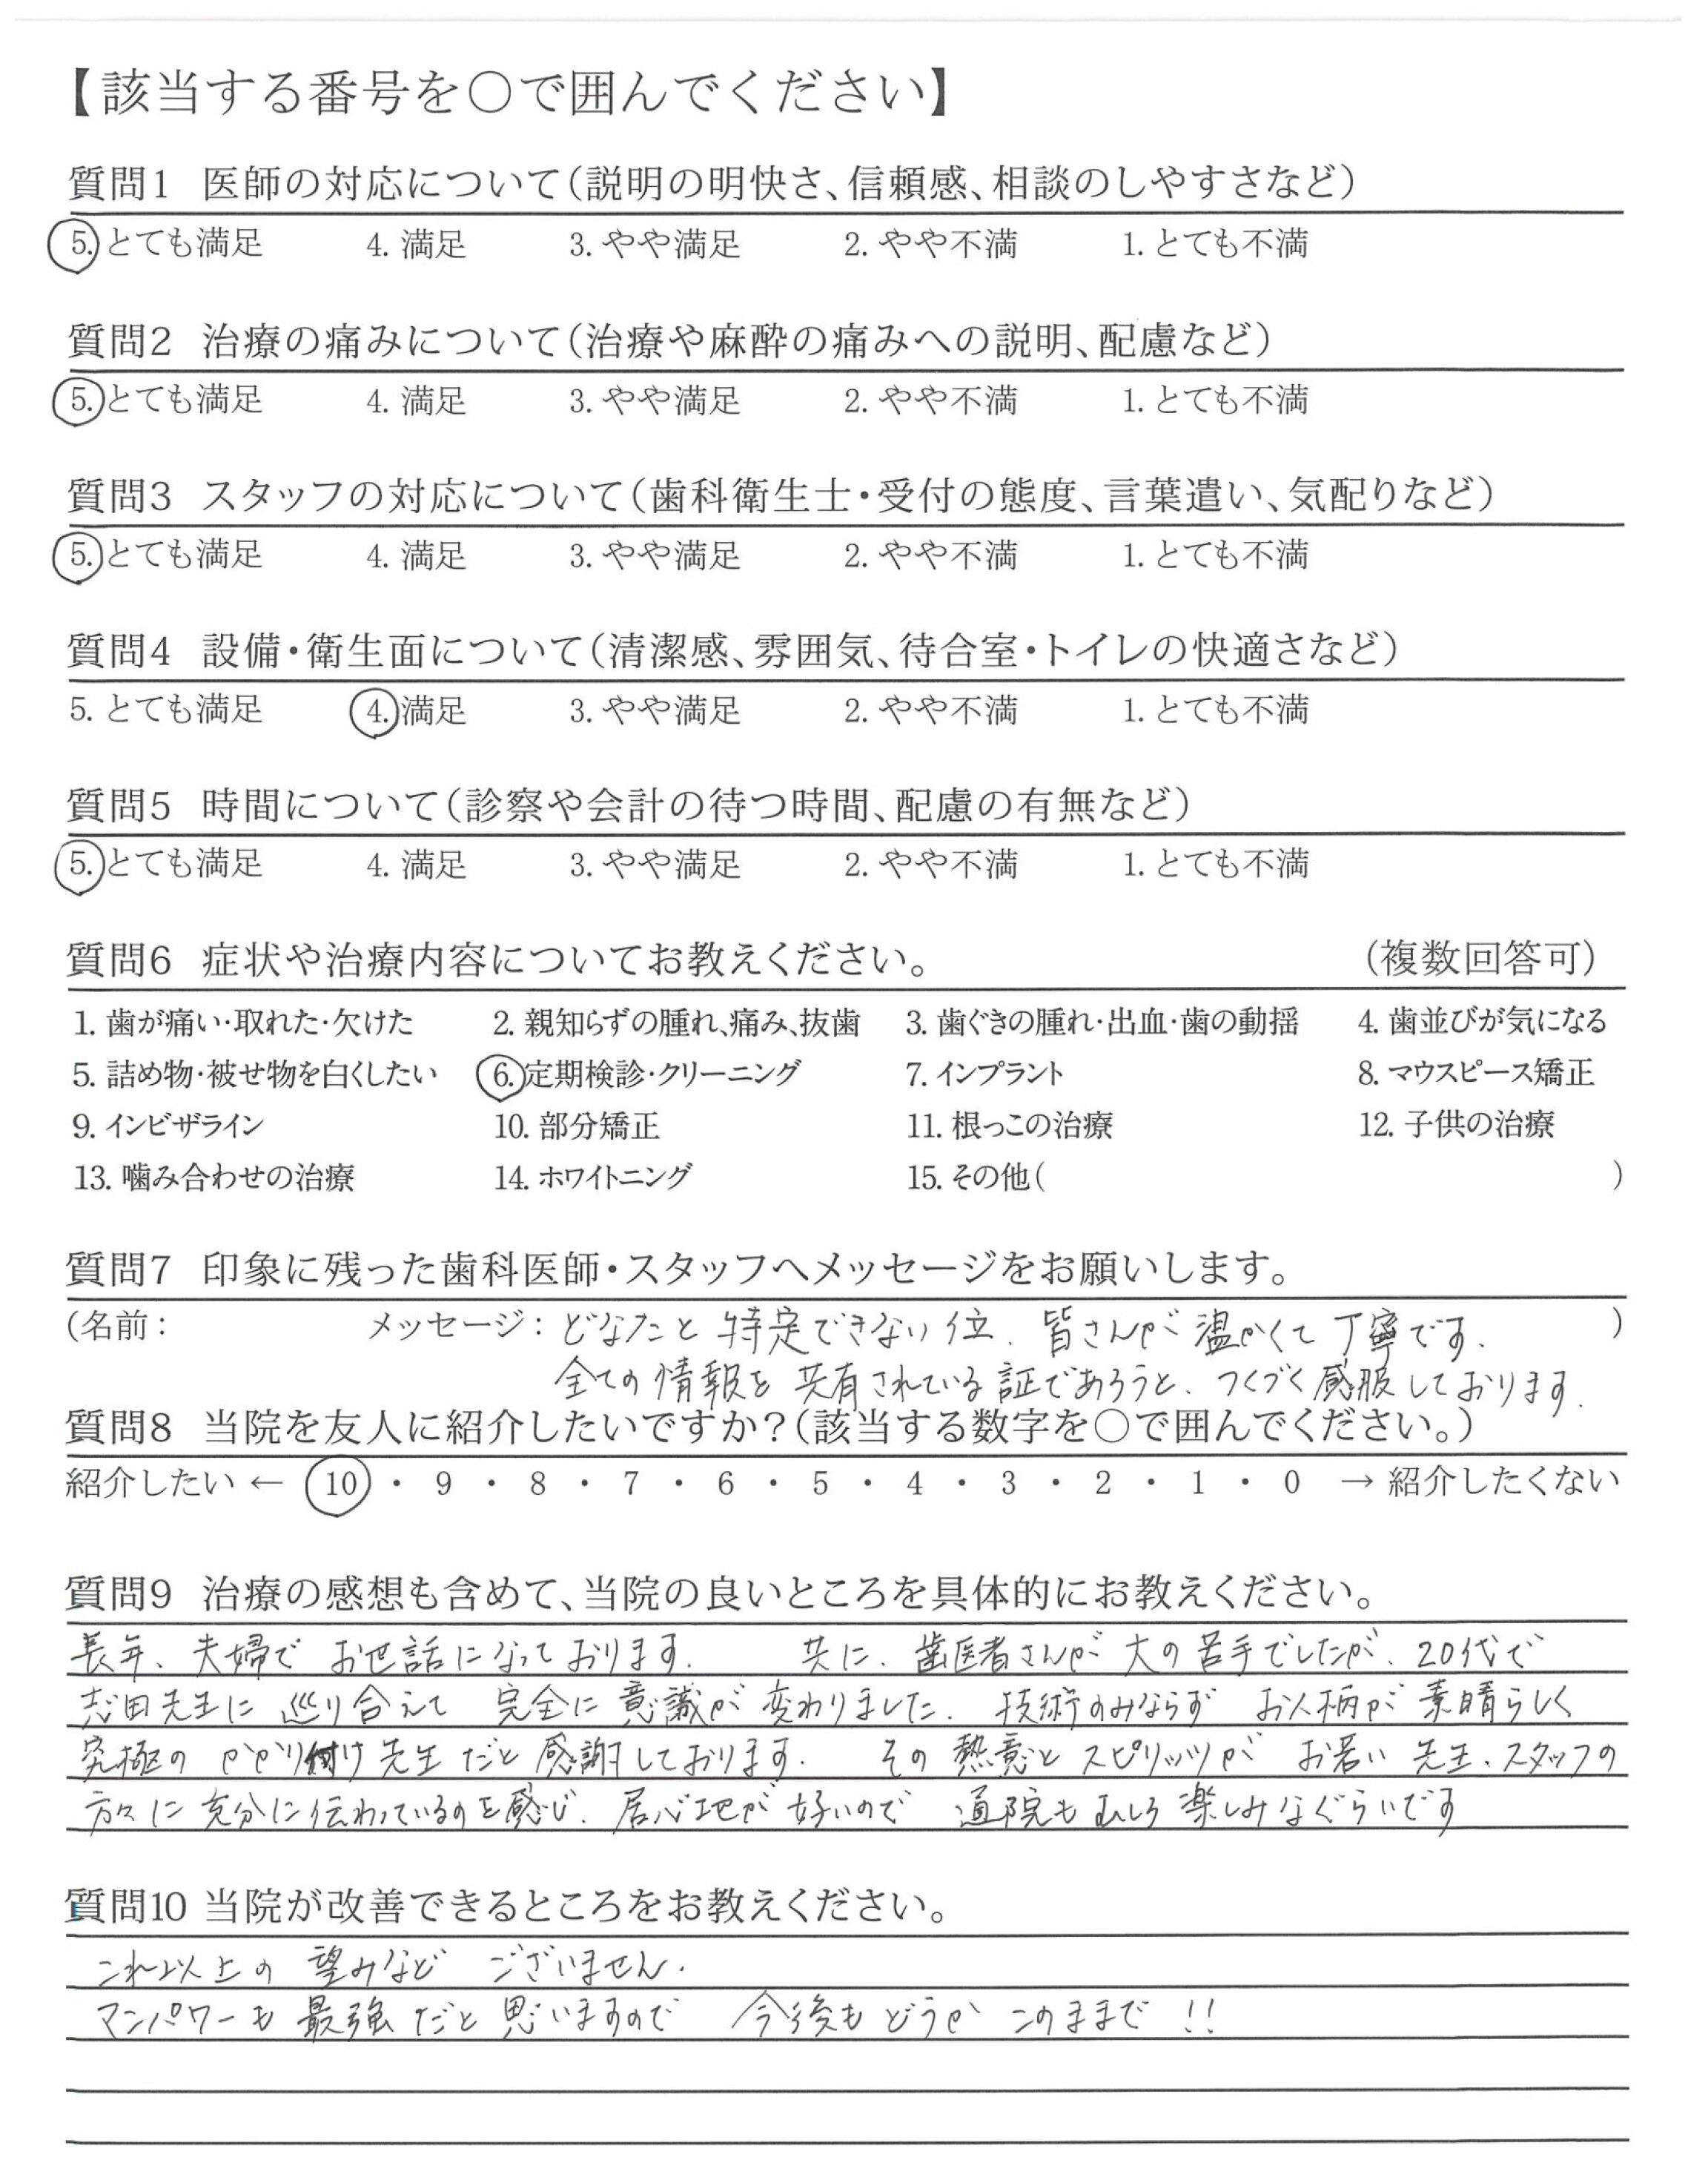 【該当する番号を○で囲んでください】
質問1 医師の対応について(説明の明快さ、信頼感、相談のしやすさなど)
5. とても満足 4. 満足 3. やや満足 2. やや不満 1. とても不満
質問2 治療の痛みについて(治療や麻酔の痛みへの説明、配慮など)
5. とても満足 4. 満足 3. やや満足 2. やや不満 1. とても不満
質問3 スタッフの対応について(歯科衛生士・受付の態度、言葉遣い、気配りなど)
5. とても満足 4. 満足 3. やや満足 2. やや不満 1. とても不満
質問4 設備・衛生面について(清潔感、雰囲気、待合室・トイレの快適さなど)
5. とても満足 4. 満足 3. やや満足 2. やや不満 1. とても不満
質問5 時間について(診察や会計の待つ時間、配慮の有無など)
5. とても満足 4. 満足 3. やや満足 2. やや不満 1. とても不満
質問6 症状や治療内容についてお教えください。 (複数回答可)
1. 歯が痛い・取れた・欠けた 2. 親知らずの腫れ、痛み、抜歯 3. 歯ぐきの腫れ・出血・歯の動揺 4. 歯並びが気になる
5. 詰め物・被せ物を白くしたい 6. 定期検診・クリーニング 7. インプラント 8. マウスピース矯正
9. インビザライン 10. 部分矯正 11. 根っこの治療 12. 子供の治療
13. 噛み合わせの治療 14. ホワイトニング 15. その他( )
質問7 印象に残った歯科医師・スタッフへメッセージをお願いします。
(名前： メッセージ：どなたと特定できない位、皆さんが温かくて丁寧です。 )
全ての情報を共有されている証であろうと、つくづく感服しております。
質問8 当院を友人に紹介したいですか？(該当する数字を○で囲んでください。)
紹介したい ← 10 ・ 9 ・ 8 ・ 7 ・ 6 ・ 5 ・ 4 ・ 3 ・ 2 ・ 1 ・ 0 → 紹介したくない
質問9 治療の感想も含めて、当院の良いところを具体的にお教えください。
長年、夫婦で お世話になっております。 共に、歯医者さんが大の苦手でしたが、20代で
志田先生に 巡り合えて 完全に意識が変わりました。技術のみならず お人柄が素晴らしく
究極の かかり付け先生だと感謝しております。 その熱意とスピリッツが お若い先生、スタッフの
方々に充分に伝わっているのを感じ、居心地が好いので 通院もむしろ楽しみなぐらいです
質問10 当院が改善できるところをお教えください。
これ以上の 望みなど ございません。
マンパワーも最強だと思いますので 今後もどうか このままで !!